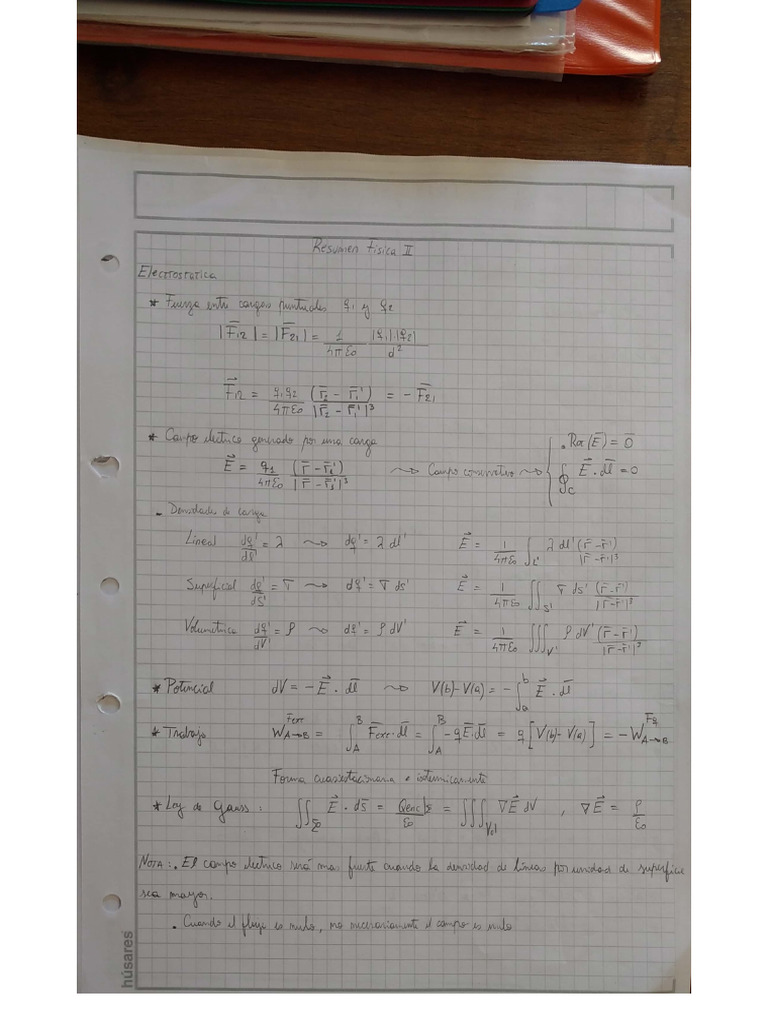 Resumen Fisica II
Electrostatica
* Fuerza entre cargas puntuales q1 y q2
|F̄12| = |F̄21| = 1/(4πε0) |q1|.|q2|/d²
F⃗12 = q1q2/(4πε0) (r̄2 - r̄1')/|r̄2 - r̄1'|³ = - F̄21
* Campo electrico generado por una carga
E⃗ = q1/(4πε0) (r̄ - r̄1')/|r̄ - r̄1'|³ ⇝ Campo conservativo ⇝ { • Rot(Ē) = 0̄
∮C E⃗ . dl̄ = 0
- Densidades de carga
Lineal dq'/dl' = λ ⇝ dq' = λ dl' E⃗ = 1/(4πε0) ∫L' λ dl' (r̄ - r̄')/|r̄ - r̄'|³
Superficial dq'/ds' = σ ⇝ dq' = σ ds' E⃗ = 1/(4πε0) ∬S' σ ds' (r̄ - r̄')/|r̄ - r̄'|³
Volumetrica dq'/dV' = ρ ⇝ dq' = ρ dV' E⃗ = 1/(4πε0) ∭V' ρ dV' (r̄ - r̄')/|r̄ - r̄'|³
* Potencial dV = - E⃗ . dl̄ ⇝ V(b) - V(a) = - ∫a^b E⃗ . dl̄
* Trabajo W A→B ^Fext = ∫A^B F̄ext . dl̄ = ∫A^B -qĒ . dl̄ = q[V(b) - V(a)] = - W A→B ^Fq
Forma cuasiestacionaria e isotermicamente
* Ley de Gauss: ∬ E⃗ . ds̄ = Qenc/ε0 = ∭Vol ∇E⃗ dV , ∇E⃗ = ρ/ε0
NOTA: • El campo electrico será mas fuerte cuando la densidad de lineas por unidad de superficie
sea mayor.
• Cuando el flujo es nulo, no necesariamente el campo es nulo
húsares